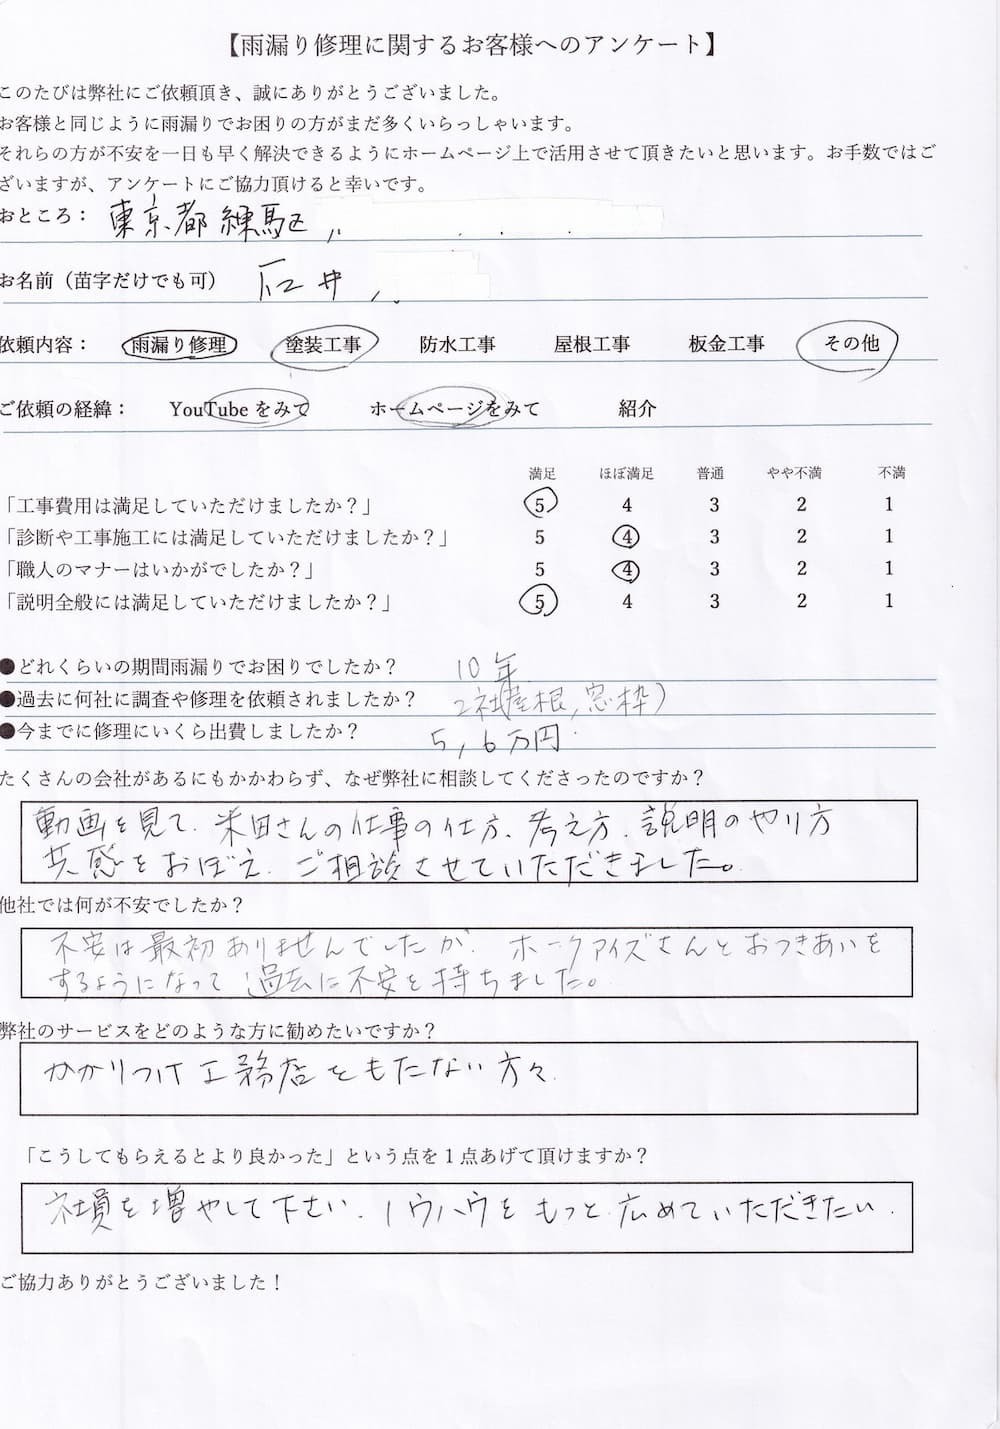 【雨漏り修理に関するお客様へのアンケート】
このたびは弊社にご依頼頂き、誠にありがとうございました。
お客様と同じように雨漏りでお困りの方がまだ多くいらっしゃいます。
それらの方が不安を一日も早く解決できるようにホームページ上で活用させて頂きたいと思います。お手数ではご
ざいますが、アンケートにご協力頂けると幸いです。
おところ： 東京都練馬区
お名前（苗字だけでも可） 石井
依頼内容： 雨漏り修理 塗装工事 防水工事 屋根工事 板金工事 その他
ご依頼の経緯： YouTubeをみて ホームページをみて 紹介
満足 ほぼ満足 普通 やや不満 不満
「工事費用は満足していただけましたか？」 5 4 3 2 1
「診断や工事施工には満足していただけましたか？」 5 4 3 2 1
「職人のマナーはいかがでしたか？」 5 4 3 2 1
「説明全般には満足していただけましたか？」 5 4 3 2 1
●どれくらいの期間雨漏りでお困りでしたか？ 10年
●過去に何社に調査や修理を依頼されましたか？ 2社(屋根,窓枠)
●今までに修理にいくら出費しましたか？ 5,6万円.
たくさんの会社があるにもかかわらず、なぜ弊社に相談してくださったのですか？
動画を見て、米田さんの仕事の仕方、考え方、説明のやり方
共感をおぼえ、ご相談させていただきました。
他社では何が不安でしたか？
不安は最初ありませんでしたが、ホークアイズさんとおつきあいを
するようになって過去に不安を持ちました。
弊社のサービスをどのような方に勧めたいですか？
かかりつけ工務店をもたない方々.
「こうしてもらえるとより良かった」という点を1点あげて頂けますか？
社員を増やして下さい. ノウハウをもっと広めていただきたい.
ご協力ありがとうございました！